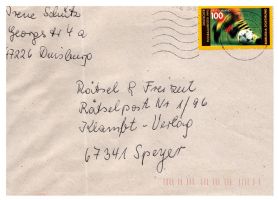 Irene Schütz
Georgstr 4 a
47226 Duisburg
100
Rätsel & Freizeit
Rätselpost Nr 1/96
Klambt-Verlag
67341 Speyer